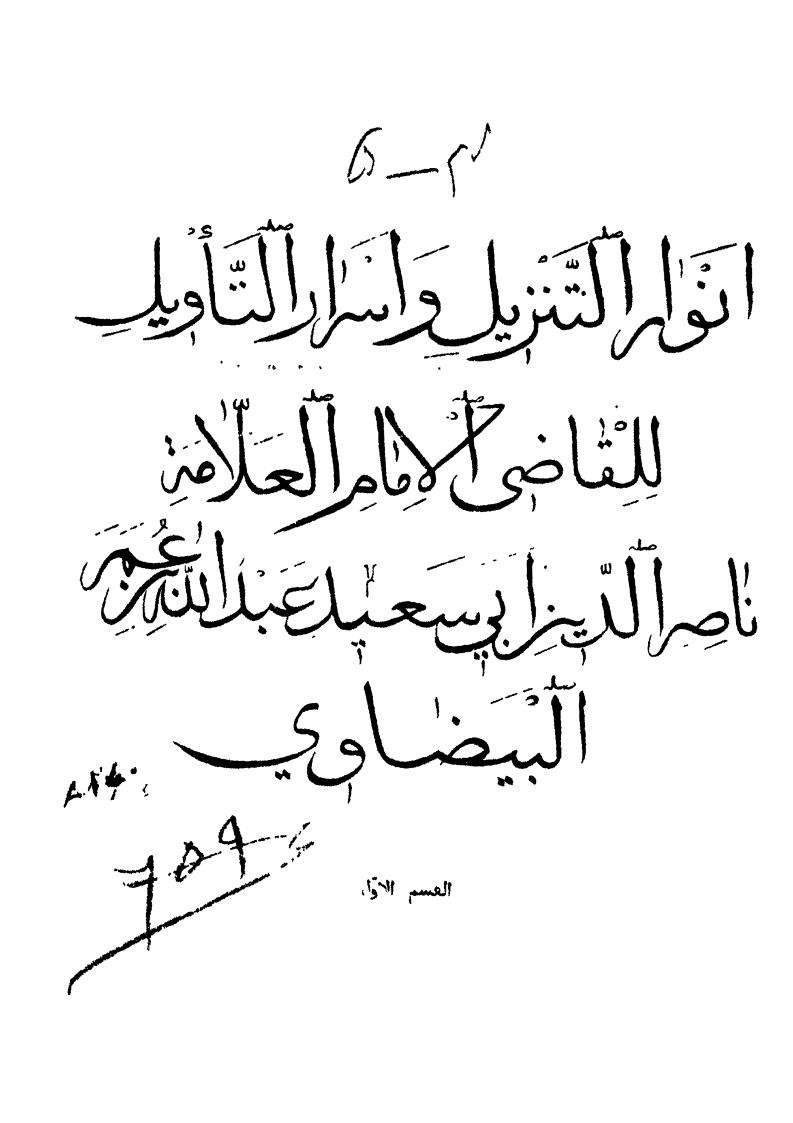 انوار التنزيل واسرار التأويل
للقاضى الامام العلامة
ناصر الدين ابي سعيد عبد الله بن عمر
البيضاوي
٦٥٩
القسم الاول